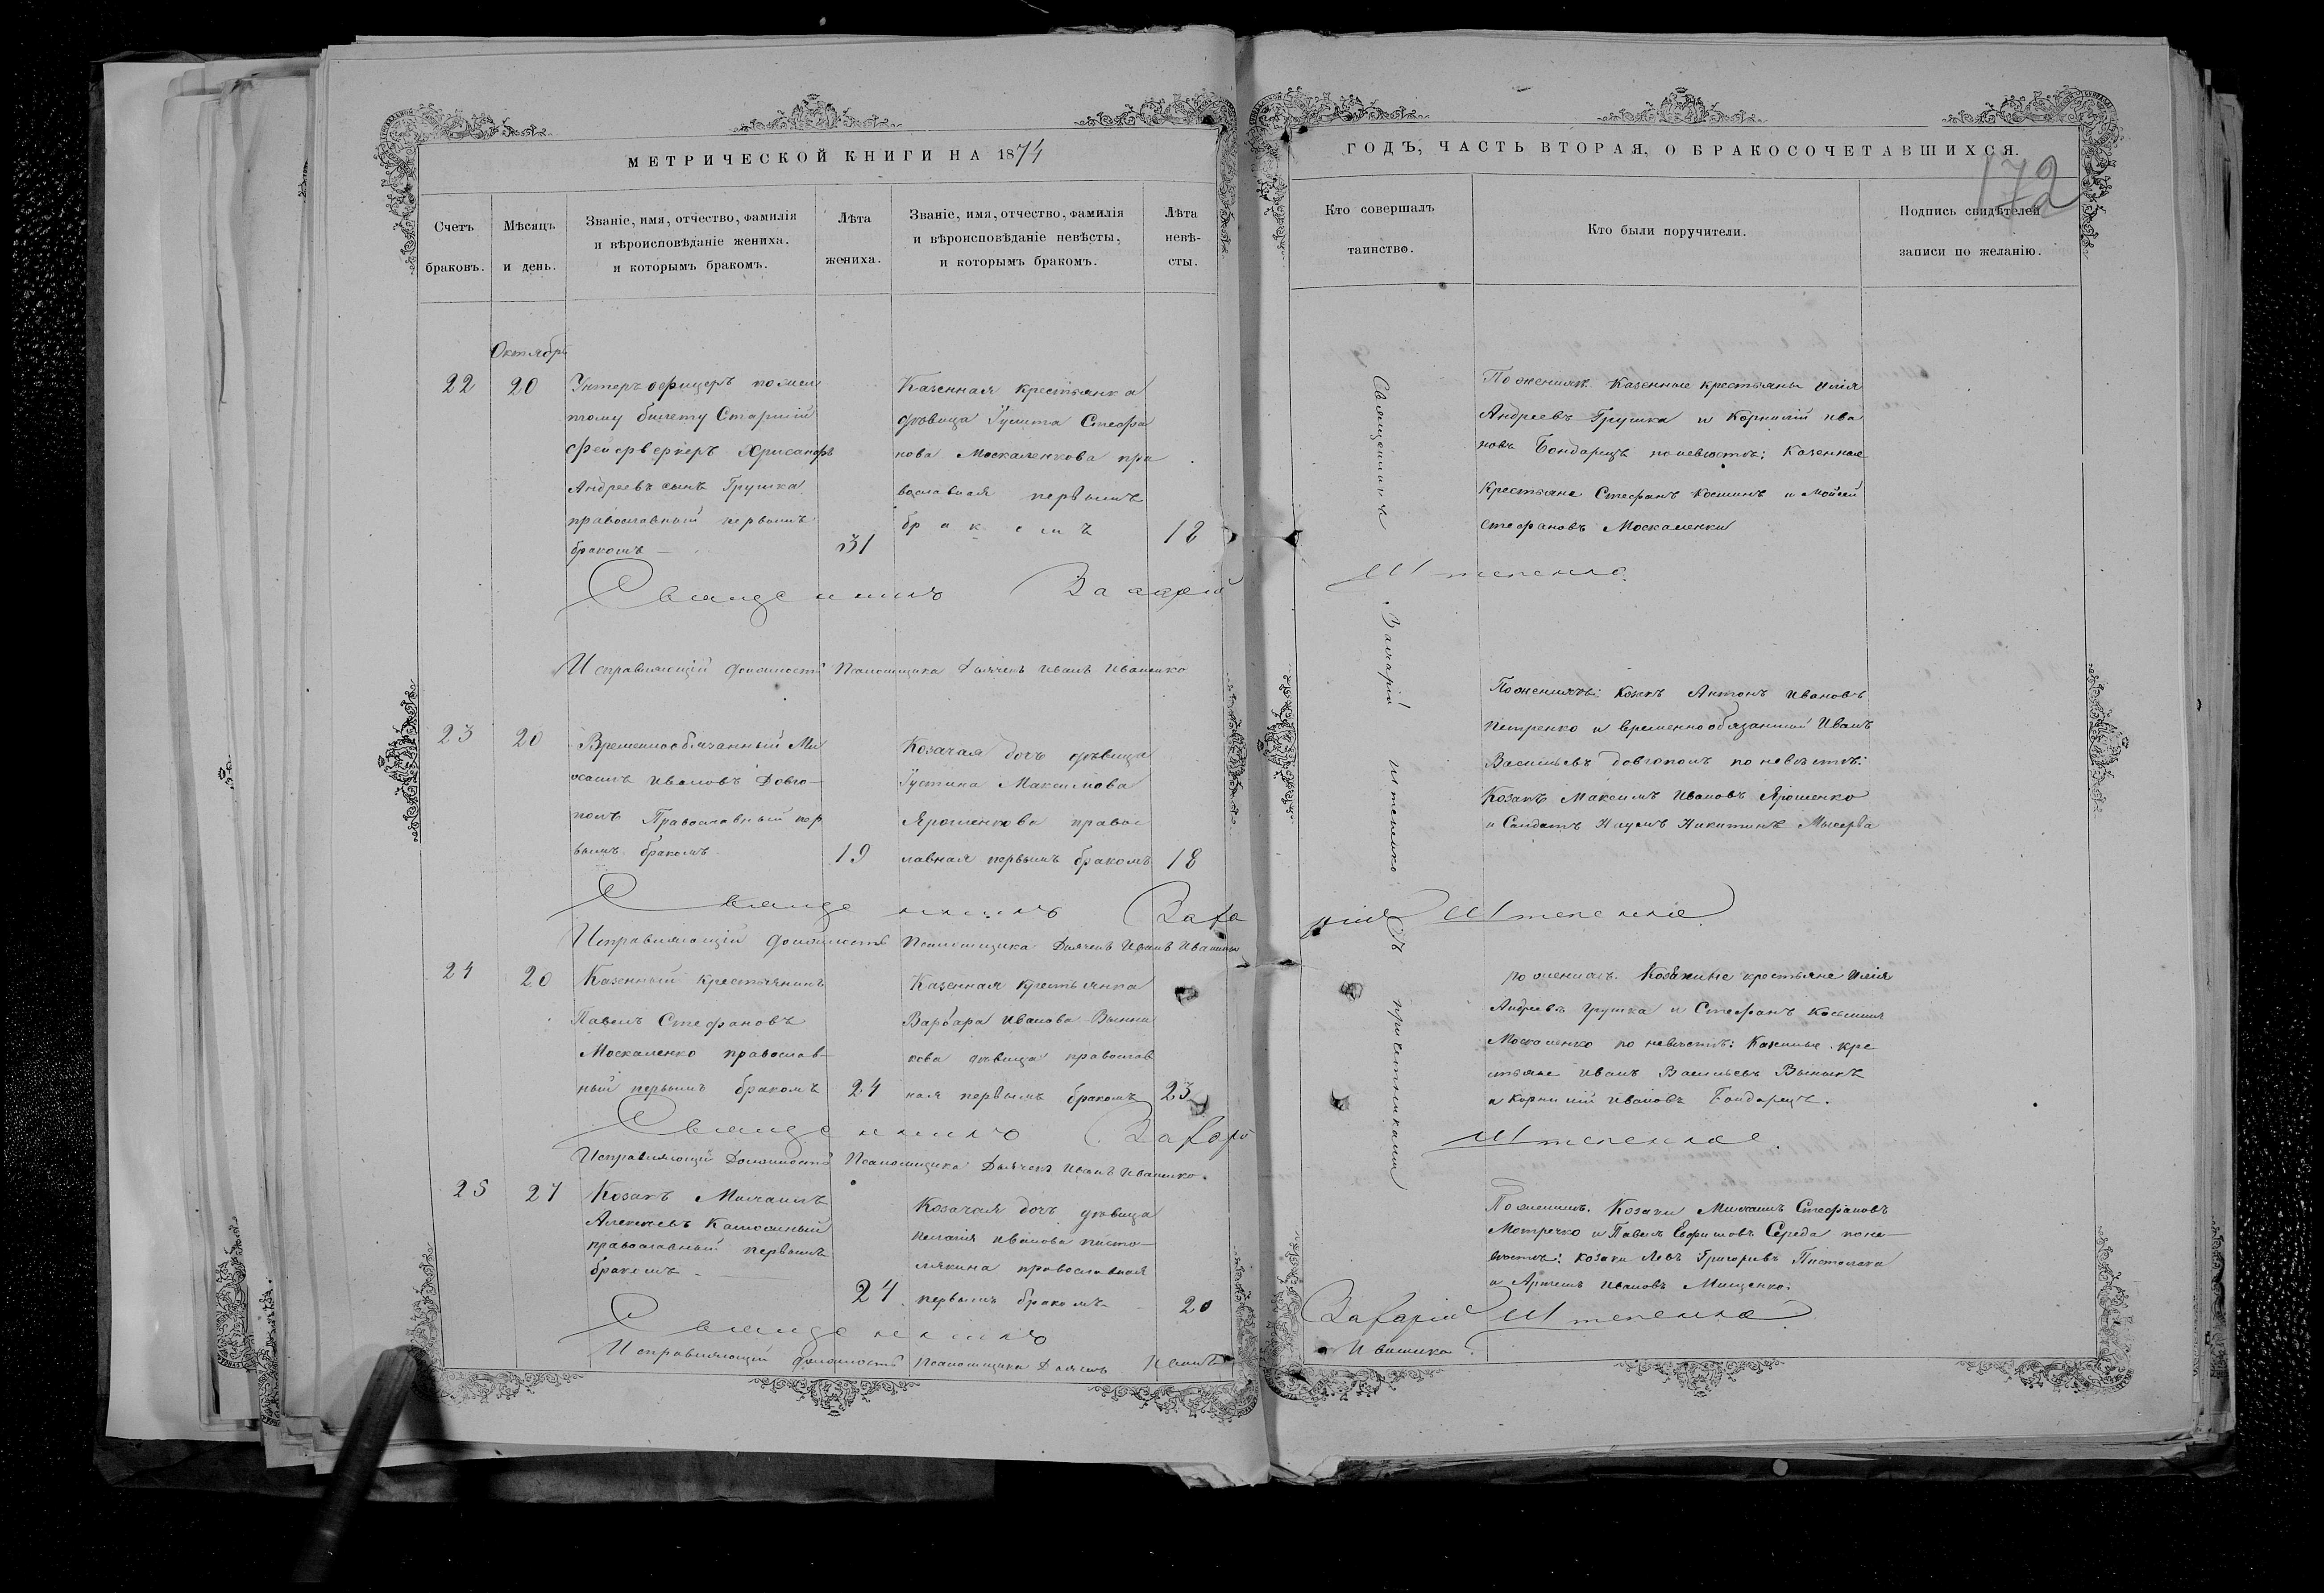 МЕТРИЧЕСКОЙ КНИГИ НА 1874
Счетъ браковъ.
Мѣсяцъ и день.
Званіе, имя, отчество, фамилія
и вѣроисповѣданіе жениха.
и которымъ бракомъ.
Лѣта жениха.
Званіе, имя, отчество, фамилія
и вѣроисповѣданіе невѣсты,
и которымъ бракомъ.
Лѣта невѣ-
сты.
Октябрь
22
20
Унтеръ офицеръ
тному билету Старшій
фейерверкеръ Хрисанфъ
Андреевъ сынъ Грушка
православный первымъ
бракомъ
31
Казенная крестьянка
дѣвица Іулита Стефа
нова Москаленкова пра
вославная первымъ
бракомъ
18
Священникъ Захарій
Исправляющій должность Псаломщика Дьячекъ Иванъ Иваненко
23
20
Временнообязанный Ми
хаилъ Ивановъ Довго-
полъ Православный пер
вымъ бракомъ
19
Козачая дочь дѣвица
Іустина Максимова
Ярошенкова правос
лавная первымъ бракомъ
18
Священникъ Заха
Исправляющій должность Псаломщика Дьячекъ Иванъ
24
20
Казенный крестьянинъ
Павелъ Стефановъ
Москаленко православ-
ный первымъ бракомъ
24
Казенная крестьянка
Варвара Иванова
кова дѣвица православ
ная первымъ бракомъ
23
Священникъ Захарі
Исправляющій Должность Псаломщика Дьячекъ Иванъ Иваненко.
25
27
Козакъ Михаилъ
Алексѣевъ
православный первымъ
бракомъ
24
Козачая дочь дѣвица
Пелагія Иванова Писто-
лякина православная
первымъ бракомъ
20
Священникъ
Исправляющій должность Псаломщика Дьячекъ Иванъ
ГОДЪ, ЧАСТЬ ВТОРАЯ, О БРАКОСОЧЕТАВШИХСЯ.
172
Кто совершалъ
таинство.
Кто были поручители.
Подпись свидѣтелей
записи по желанію.
Священникъ Захарій Штепенко съ причетниками
По женихѣ: Казенные крестьяны Илія
Андреевъ Грушка и Корнилій Ива
новъ Бондарецъ по невѣстѣ: Казенные
Крестьяне Стефанъ Косминъ и Мойсей
Стефановъ Москаленки
Штепенко.
По женихѣ: Козакъ Антонъ Ивановъ
Петренко и временнообязанный Иванъ
Васильевъ Довгополъ по невѣстѣ:
Козакъ Максимъ Ивановъ Ярошенко
и Солдатъ Наумъ Никитинъ
рій Штепенко
По женихѣ. крестьяне Илія
Андреевъ Грушка и Стефанъ Косминъ
Москаленко по невѣстѣ: Казенные кре
стьяне Иванъ Васильевъ
и Корнилій Ивановъ Бондарецъ.
Штепенко.
По женихѣ. Козаки Михаилъ Стефановъ
и Павелъ Ефимовъ Середа по не-
вѣстѣ: козаки Левъ Григорьевъ
и Ивановъ Мищенко.
Захарій Штепенко
Иваненко.